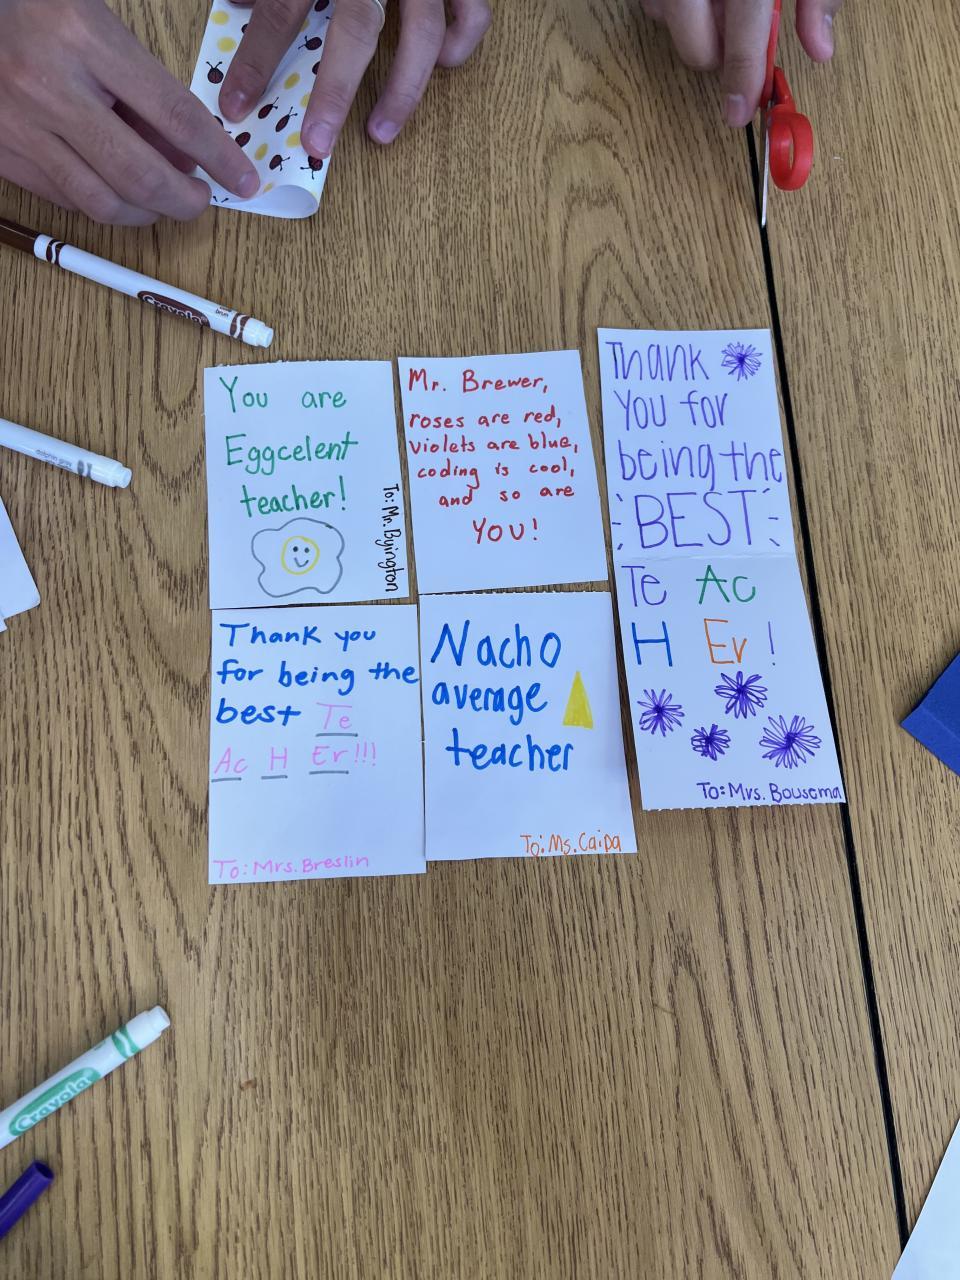 You are
Eggcelent
teacher!
To: Mr. Byington
Mr. Brewer,
roses are red,
violets are blue,
coding is cool,
and so are
YOU!
Thank
You for
being the
BEST
Te Ac
H Er!
To: Mrs. Bousema
Thank you
for being the
best Te
Ac H Er!!!
To: Mrs. Breslin
Nacho
average
teacher
To: Ms. Caipa
Crayola
dolphin gray
Crayola